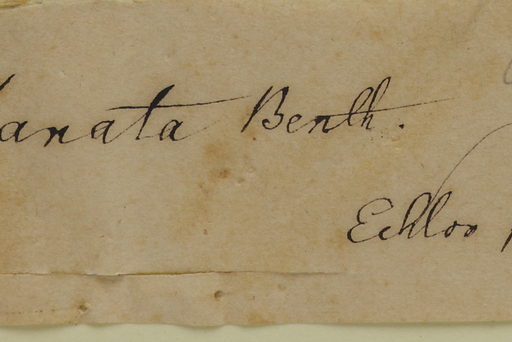 lanata Benth.
Echloo